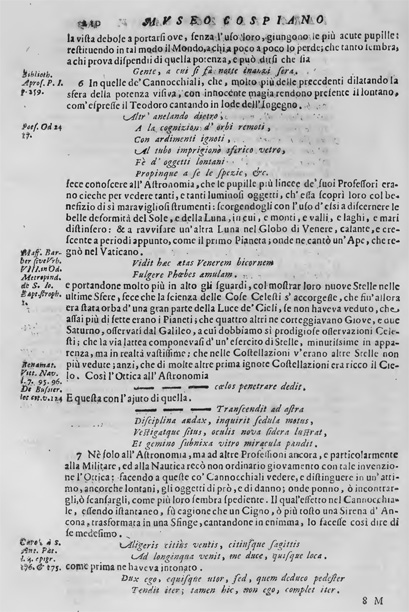 240 MVSEO COSPIANO
la vista debole a portarsi ove, senza l'uso loro, giungono le più acute pupille:
restituendo in tal modo il Mondo, a chi a poco a poco lo perde; che tanto sembra,
a chi prova dispendii di quella potenza, e può dirsi che sia
Gente, a cui si fà notte inanzi sera.
Biblioth.
Apros. P. I.
p. 259.
6 In quelle de' Cannocchiali, che, molto più delle precedenti dilatando la
sfera della potenza visiva, con innocente magia rendono presente il lontano,
com'espresse il Teodoro cantando in lode dell'Ingegno.
Poes. Od 24
27.
Altr' anelando dietro,
A la cognizion d' orbi remoti,
Con ardimenti ignoti,
Al tubo imprigionò osferico vetro,
Fè d' oggetti lontani
Propinque a se le spezie, &c.
fece conoscere all'Astronomia, che le pupille più lincee de' suoi Professori era-
no cieche per vedere tanti, e tanti luminosi oggetti, ch' essa scoprì loro col be-
nefizio di sì maravigliosi strumenti: scorgendogli con l'uso d'essi a discernere le
belle deformità del Sole, e della Luna, in cui, e monti, e valli, e laghi, e mari
distinsero: & a ravvisare un'altra Luna nel Globo di Venere, calante, e cre-
scente a periodi appunto, come il primo Pianeta; onde ne cantò un'Ape, che re-
gnò nel Vaticano.
Maff. Bar-
ber sive Vrb.
VIII. in Od.
de S. Io.
Vidit hæc ætas Venerem bicornem
Fulgere Phœbes æmulam.
e portandone molto più in alto gli sguardi, col mostrar loro nuove Stelle nelle
ultime Sfere, fece che la scienza delle Cose Celesti s' accorgesse, che fin'allora
era stata orba d'una gran parte della Luce de' Cieli, se non haveva veduto, che
assai più di sette erano i Pianeti; che quattro altri ne corteggiavano Giove, e due
Saturno, osservati dal Galileo, a cui dobbiamo sì prodigiose osservazioni Cele-
sti; che la via lattea componevasi d' un'esercito di Stelle, minutissime in appa-
renza, ma in realtà vastissime: che nelle Costellazioni v'erano altre Stelle non
più vedute; anzi, che di molte altre prima ignote Costellazioni era ricco il Cie-
lo. Così l'Ottica all'Astronomia
cœlos penetrare dedit.
l. 7. 95. 96.
E questa con l'ajuto di quella.
Transcendit ad astra
Disciplina audax, inquirit sedula motus,
Vestigatque situs, oculis nova sidera lustrat,
Et gemino subnixa vitro miracula pandit.
7 Nè solo all'Astronomia, ma ad altre Professioni ancora, e particolarmente
alla Militare, ed alla Nautica recò non ordinario giovamento con tale invenzio-
ne l'Ottica: facendo a queste co' Cannocchiali vedere, e distinguere in un'atti-
mo, ancorche lontani, gli oggetti di prò, e di danno; onde ponno, ò incontrar-
gli, ò scansargli, come più loro sembra spediente. Il qual'effetto nel Cannocchia-
le, essendo istantaneo, fù cagione che un Cigno, ò più tosto una Sirena d' An-
cona, trasformata in una Sfinge, cantandone in enimma, lo facesse così dire di
se medesimo.
Carol. à S.
Ant. Pat.
l. 4. epigr.
176. & 175.
Aligeris citiùs ventis, citiusque sagittis
Ad longinqua venit, me duce, quisque loca.
come prima ne haveva intonato.
Dux ego, equisque utor, sed, quem deduco pedester
Tendit iter; tamen hic, non ego, complet iter.
8 M